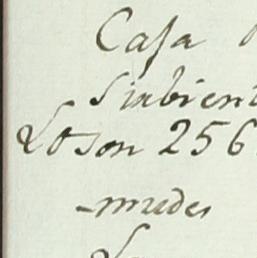 Casa
sirbient
Loson 256
-mudes